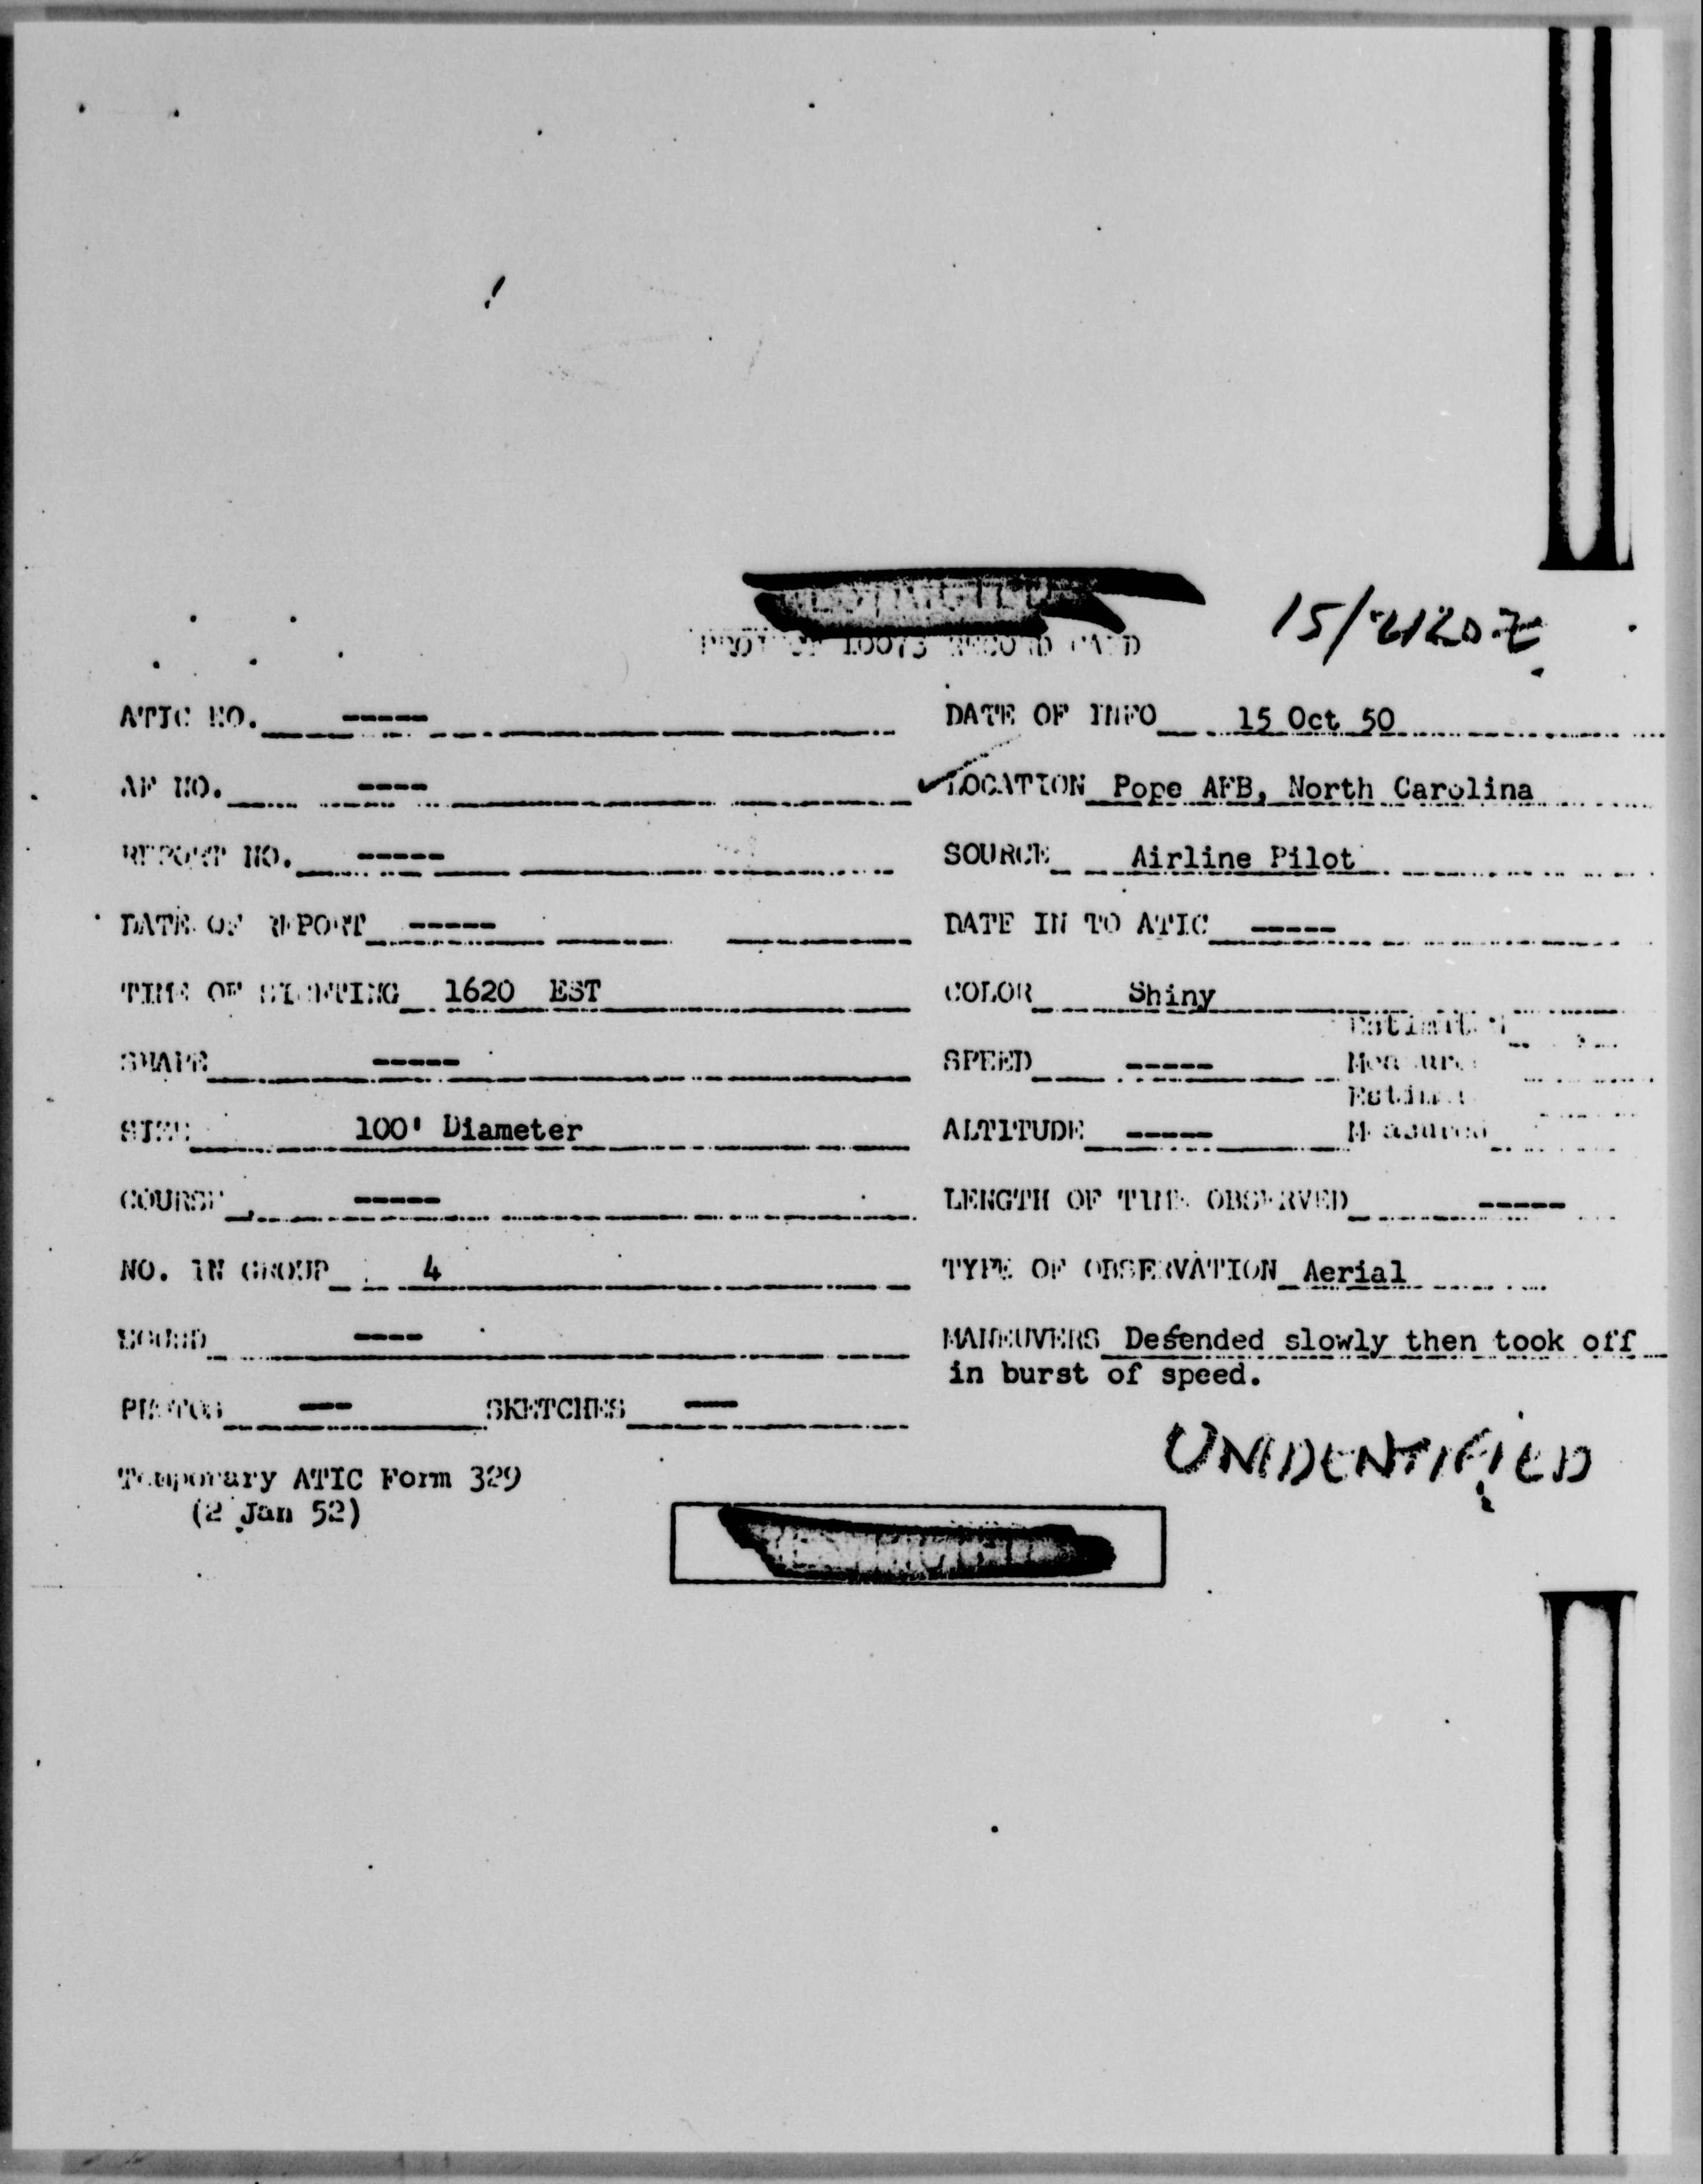 10073 RECORD CARD
15/2120Z
ATIC NO. -----
DATE OF INFO 15 Oct 50
AF NO. ----
✓LOCATION Pope AFB, North Carolina
REPORT NO. -----
SOURCE Airline Pilot
DATE OF REPORT -----
DATE IN TO ATIC -----
TIME OF SIGHTING 1620 EST
COLOR Shiny
SHAPE -----
SPEED -----
Estimated
Measured
SIZE 100' Diameter
ALTITUDE -----
Estimated
Measured
COURSE -----
LENGTH OF TIME OBSERVED -----
NO. IN GROUP 4
TYPE OF OBSERVATION Aerial
SOUND ----
MANEUVERS Desended slowly then took off
in burst of speed.
PHOTOS --- SKETCHES ---
UNIDENTIFIED
Temporary ATIC Form 329
(2 Jan 52)